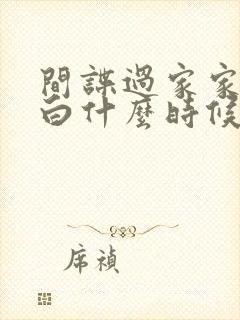 間諜過家家
白什麼時候
席禎